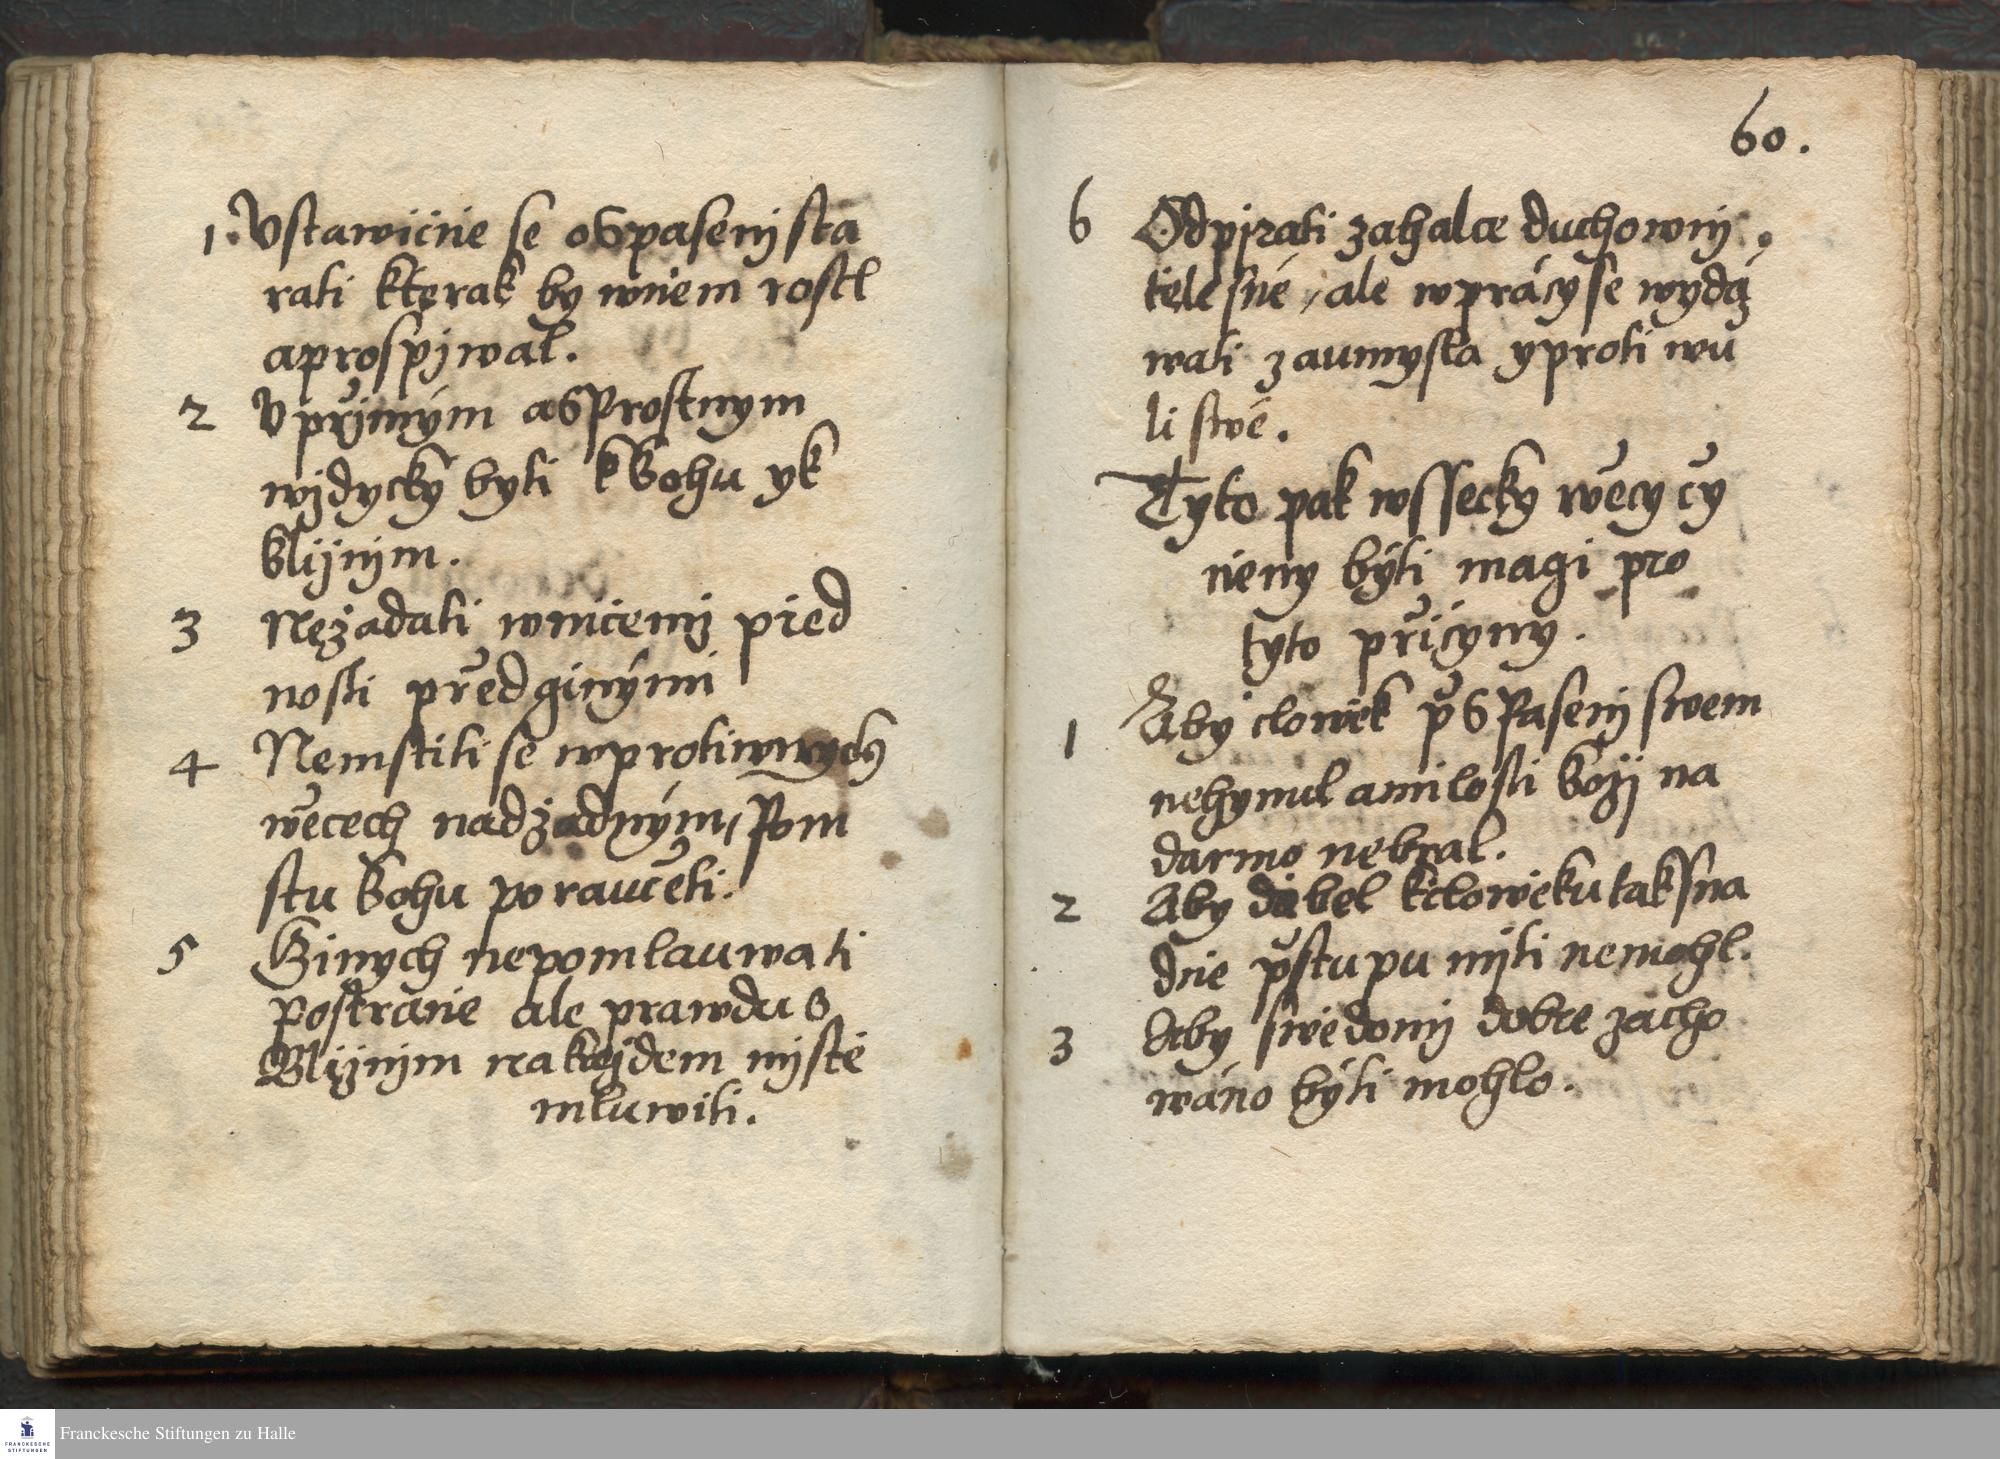 1. Vstawičnie se o Spasenj sta
rati kterak by wniem rostl
a prospjwal.
2 Vpřjmým a Sprostnym
wjdycky byti k Bohu y k
Bližnjm.
3 Nežadati wničemž před
nosti před ginými
4 Nemstiti se w protiwnych
wěcech nad žadným, Pom
stu Bohu poraučeti.
5 Giných nepomlauwati
postranie ale prawdu S
Bližnjm na každem mjstě
mluwiti.
60.
6 Odpjrati zahalce duchownj
tělesné, ale w prácy se wydá
wati zaumysla y proti wů
li swé.
Tyto pak wssecky wěcy čy
nieny býti magi pro
tyto přičyny.
1 Aby človiek při Spasenj swem
nehynul a milosti Božj na
darmo nebral.
2 Aby diabel k človieku tak sna
dnie přistupu mjti nemohl.
3 Aby swiedomj dobre zacho
wáno býti mohlo.
Franckesche Stiftungen zu Halle
FRANCKESCHE
STIFTUNGEN